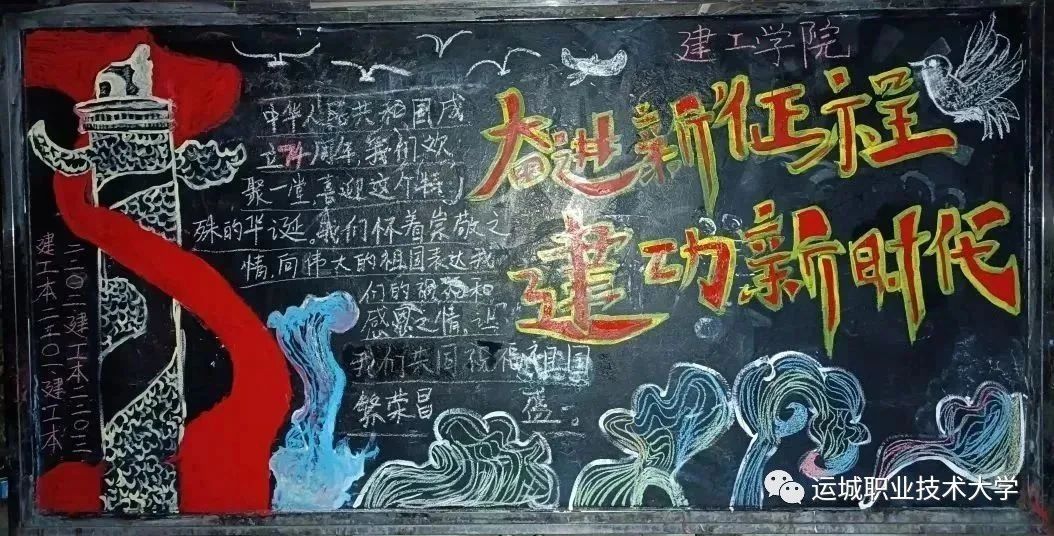 建工学院
奋进新征程
建功新时代
中华人民共和国成
立74周年,我们欢
聚一堂,喜迎这个特
殊的华诞。我们怀着崇敬之
情,向伟大的祖国表达我
们的和
感恩之情,让
我们共同祝福祖国
繁荣昌 盛。
建工本二二〇一建工本
二二〇二建工本二二〇三
运城职业技术大学